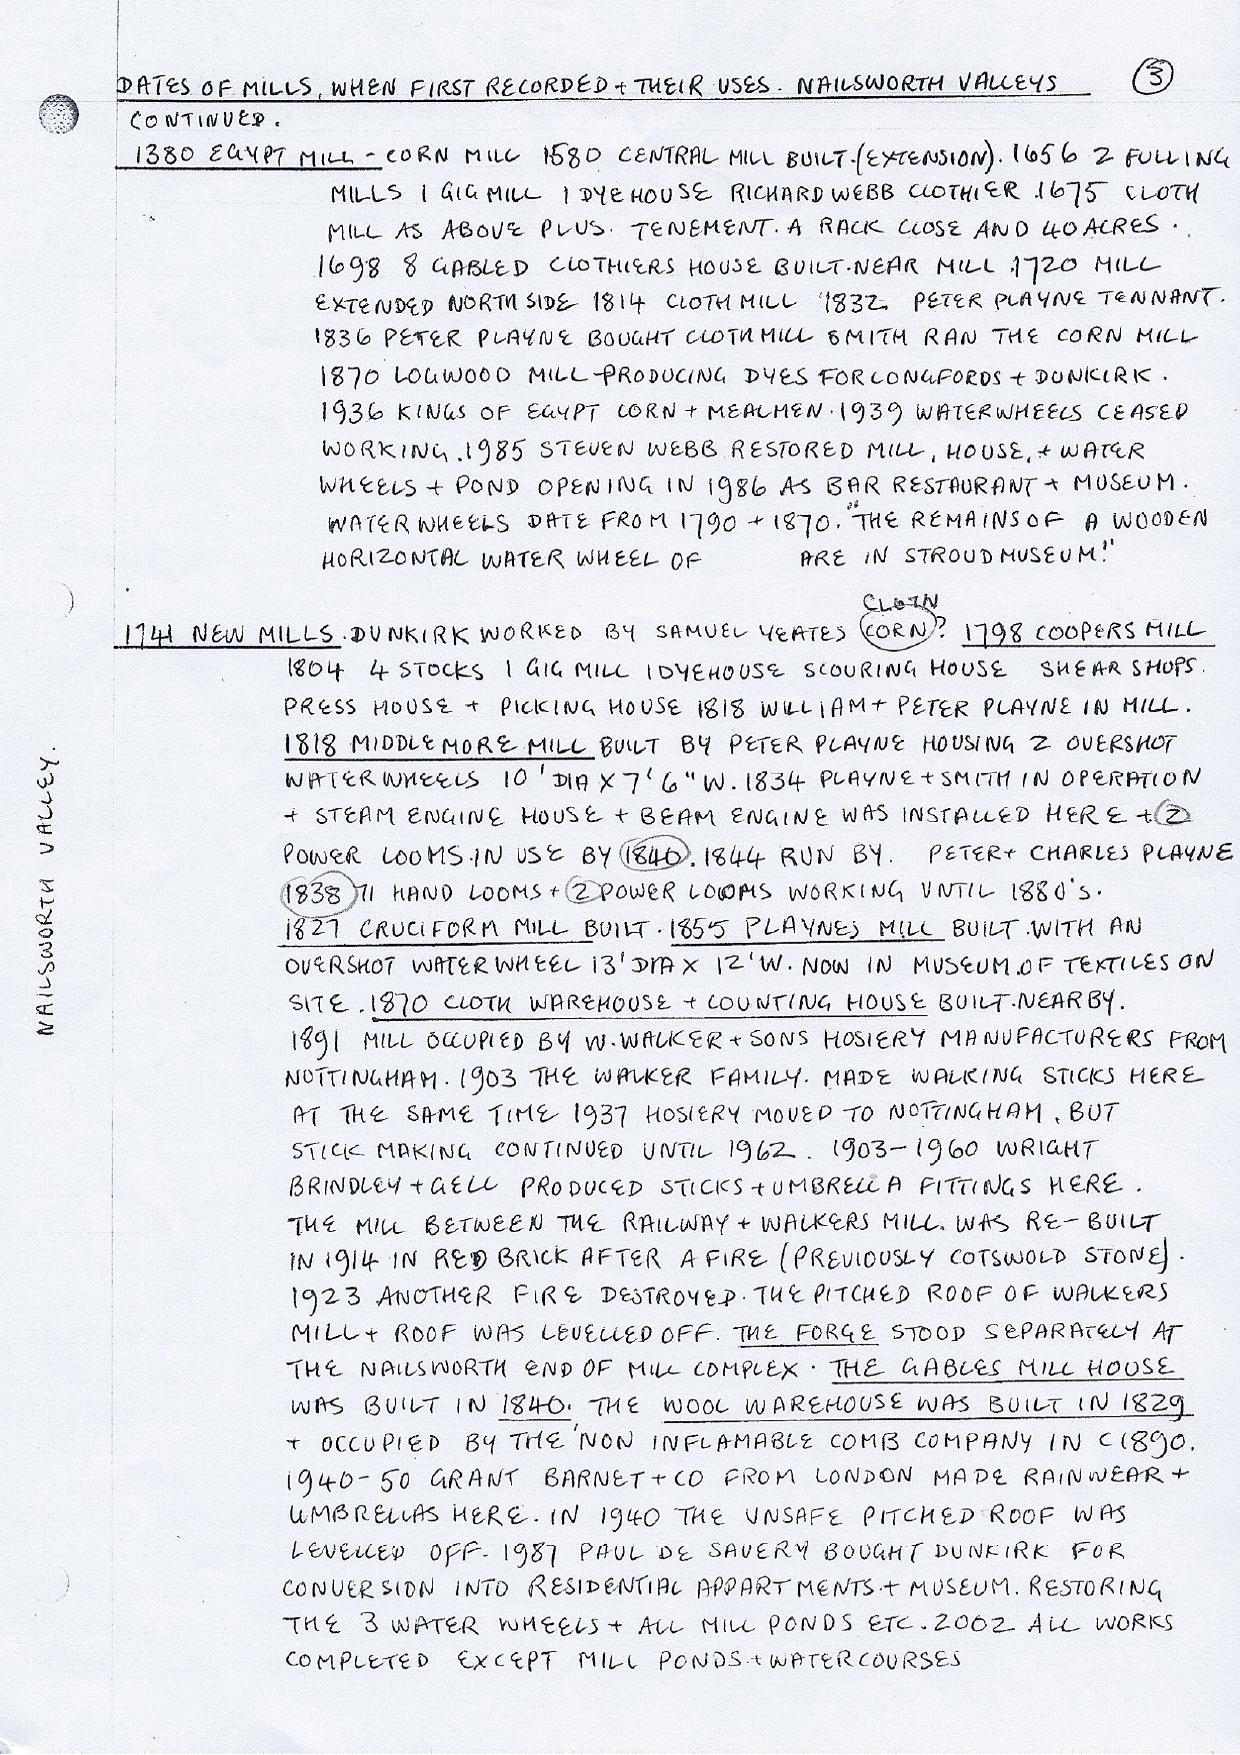 DATES OF MILLS, WHEN FIRST RECORDED + THEIR USES. NAILSWORTH VALLEYS 3
CONTINUED.
1380 EGYPT MILL - CORN MILL 1580 CENTRAL MILL BUILT.(EXTENSION). 1656 2 FULLING
MILLS 1 GIG MILL 1 DYEHOUSE RICHARD WEBB CLOTHIER .1675 CLOTH
MILL AS ABOVE PLUS. TENEMENT. A RACK CLOSE AND 40 ACRES.
1698 8 GABLED CLOTHIERS HOUSE BUILT.NEAR MILL .1720 MILL
EXTENDED NORTH SIDE 1814 CLOTH MILL 1832 PETER PLAYNE TENNANT.
1836 PETER PLAYNE BOUGHT CLOTH MILL SMITH RAN THE CORN MILL
1870 LOGWOOD MILL PRODUCING DYES FOR LONGFORDS + DUNKIRK.
1936 KINGS OF EGYPT CORN + MEALMEN.1939 WATERWHEELS CEASED
WORKING.1985 STEVEN WEBB RESTORED MILL, HOUSE, + WATER
WHEELS + POND OPENING IN 1986 AS BAR RESTAURANT + MUSEUM.
WATER WHEELS DATE FROM 1790 + 1870. "THE REMAINS OF A WOODEN
HORIZONTAL WATER WHEEL OF ARE IN STROUD MUSEUM."
CLOTH
1741 NEW MILLS. DUNKIRK WORKED BY SAMUEL YEATES CORN? 1798 COOPERS MILL
1804 4 STOCKS 1 GIG MILL 1 DYEHOUSE SCOURING HOUSE SHEAR SHOPS.
PRESS HOUSE + PICKING HOUSE 1818 WILLIAM + PETER PLAYNE IN MILL.
1818 MIDDLEMORE MILL BUILT BY PETER PLAYNE HOUSING 2 OVERSHOT
WATERWHEELS 10' DIA X 7' 6" W. 1834 PLAYNE + SMITH IN OPERATION
+ STEAM ENGINE HOUSE + BEAM ENGINE WAS INSTALLED HERE + 2
POWER LOOMS.IN USE BY 1840. 1844 RUN BY. PETER + CHARLES PLAYNE
1838 71 HAND LOOMS + 2 POWER LOOMS WORKING UNTIL 1880'S.
1827 CRUCIFORM MILL BUILT. 1855 PLAYNES MILL BUILT.WITH AN
OVERSHOT WATERWHEEL 13' DIA X 12' W. NOW IN MUSEUM.OF TEXTILES ON
SITE. 1870 CLOTH WAREHOUSE + COUNTING HOUSE BUILT.NEARBY.
1891 MILL OCCUPIED BY W.WALKER + SONS HOSIERY MANUFACTURERS FROM
NOTTINGHAM. 1903 THE WALKER FAMILY. MADE WALKING STICKS HERE
AT THE SAME TIME 1937 HOSIERY MOVED TO NOTTINGHAM, BUT
STICK MAKING CONTINUED UNTIL 1962. 1903-1960 WRIGHT
BRINDLEY + GELL PRODUCED STICKS + UMBRELLA FITTINGS HERE.
THE MILL BETWEEN THE RAILWAY + WALKERS MILL. WAS RE-BUILT
IN 1914 IN RED BRICK AFTER A FIRE (PREVIOUSLY COTSWOLD STONE).
1923 ANOTHER FIRE DESTROYED. THE PITCHED ROOF OF WALKERS
MILL + ROOF WAS LEVELLED OFF. THE FORGE STOOD SEPARATELY AT
THE NAILSWORTH END OF MILL COMPLEX. THE GABLES MILL HOUSE
WAS BUILT IN 1840. THE WOOL WAREHOUSE WAS BUILT IN 1829
+ OCCUPIED BY THE 'NON INFLAMABLE COMB COMPANY IN C1890.
1940-50 GRANT BARNET + CO FROM LONDON MADE RAINWEAR +
UMBRELLAS HERE. IN 1940 THE UNSAFE PITCHED ROOF WAS
LEVELLED OFF. 1987 PAUL DE SAVERY BOUGHT DUNKIRK FOR
CONVERSION INTO RESIDENTIAL APPARTMENTS + MUSEUM. RESTORING
THE 3 WATER WHEELS + ALL MILL PONDS ETC. 2002 ALL WORKS
COMPLETED EXCEPT MILL PONDS + WATERCOURSES
NAILSWORTH VALLEY.